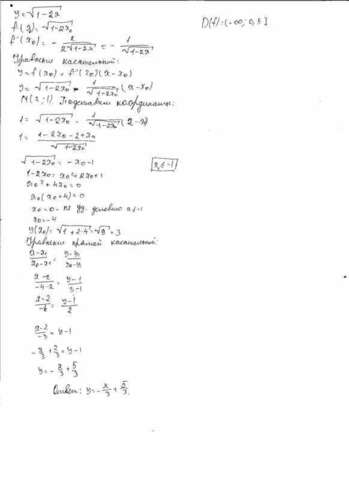 y=√1-2x
D(f)=(-∞; 0,5]
f(x₀)=√1-2x₀
f'(x₀) = - 2/(2√1-2x) = - 1/√1-2x
Уравнение касательной:
y=f(x₀)+f'(x₀)(x-x₀)
y=√1-2x₀ - 1/√1-2x₀ (x-x₀)
M(2;1) Подставим координаты:
1=√1-2x₀ - 1/√1-2x (2-x)
1= (1-2x₀-2+x₀)/√1-2x₀
√1-2x₀ = -x₀-1
x₀≤-1
1-2x₀=x₀²+2x₀+1
x₀²+4x₀=0
x₀(x₀+4)=0
x₀=0 - не уд. условию x≤-1
x₀=-4
y(x₀)=√1+2·4=√9=3
Уравнение прямой касательной:
(x-x₁)/(x₀-x₁) = (y-y₁)/(y₀-y₁)
(x-2)/(-4-2) = (y-1)/(3-1)
(x-2)/-6 = (y-1)/2
(x-2)/-3 = y-1
-x/3 + 2/3 = y-1
y=-x/3+5/3
Ответ: y=-x/3+5/3.